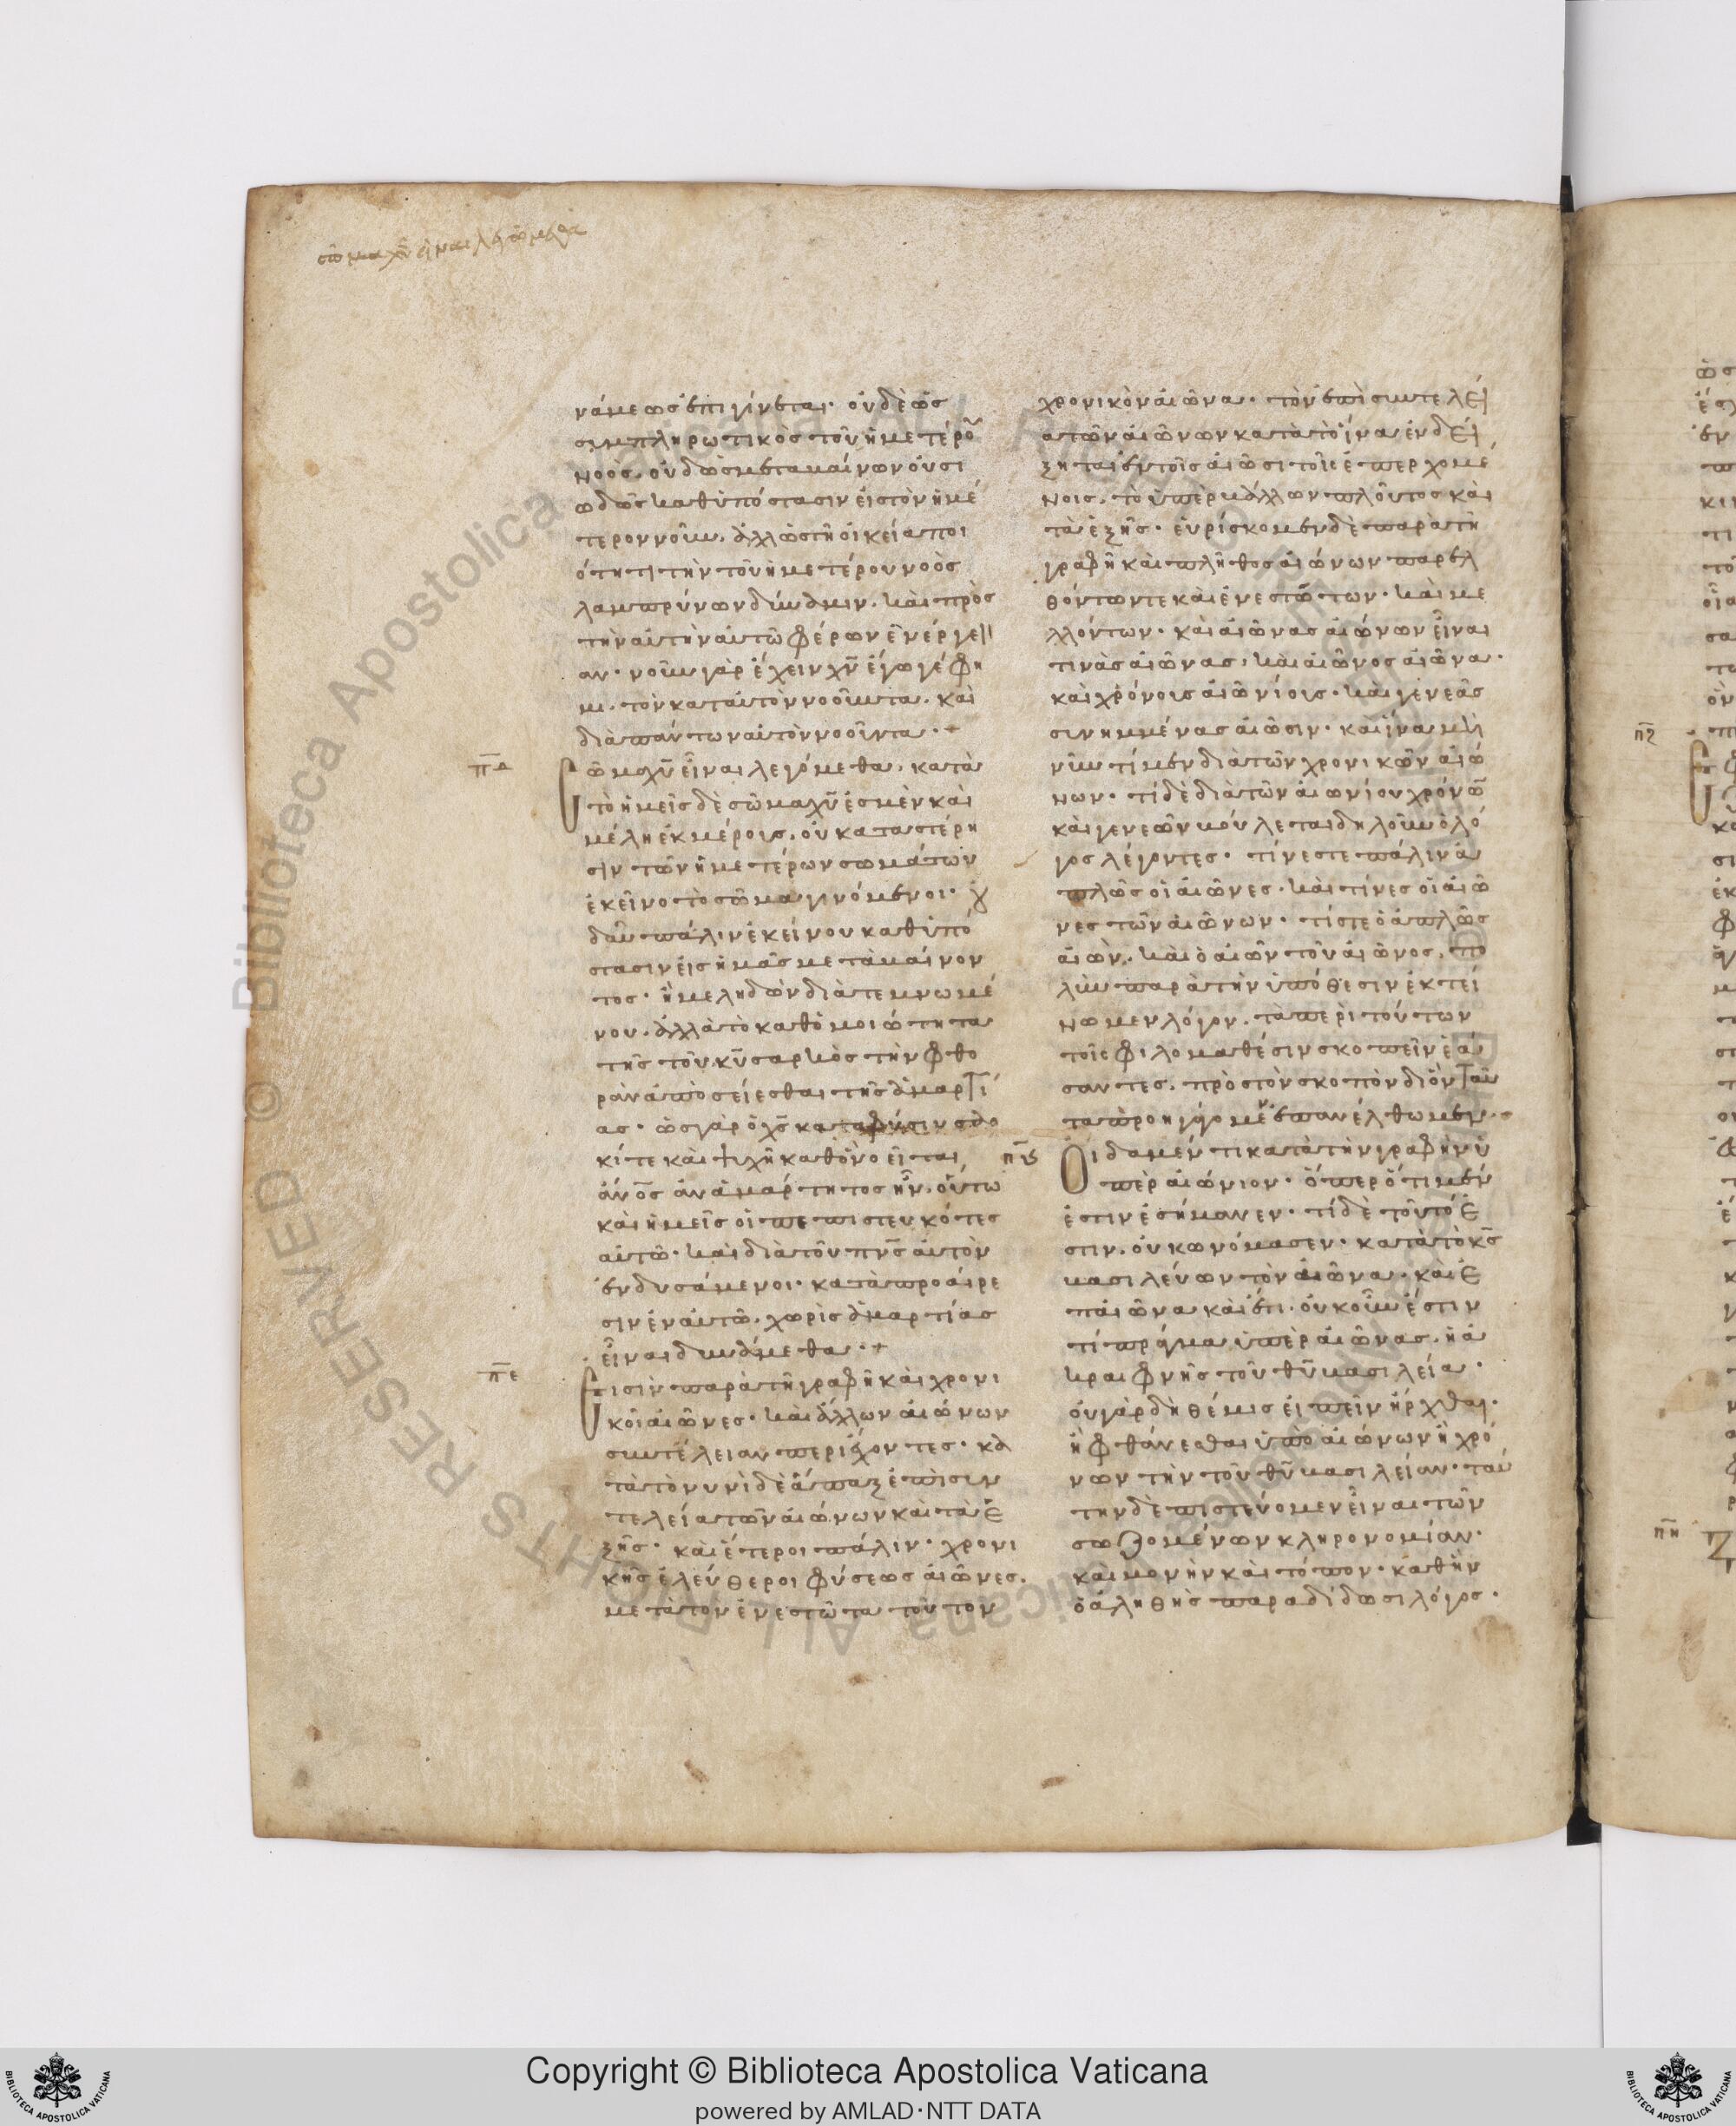 σῶμα χῦ εἶναι λεγόμεθα
νάμεως ἐπιγίνεται· οὐδὲ ὡς
συμπληρωτικὸς τοῦ ἡμετέρου
νοὸς· οὐδ' ὡς μεταβαίνων οὐσι
ωδῶς καθ' ὑπόστασιν εἰς τὸν ἡμέ
τερον νοῦν· ἀλλ' ὡς τῆ οἰκεία ποι
ότητι τὴν τοῦ ἡμετέρου νοὸς
λαμπρύνων δύναμιν· καὶ πρὸς
τὴν αὐτὴν αὐτῶ φέρων ἐνέργει
αν· νοῦν γὰρ ἔχειν χῦ ἔγωγέ φη
μι· τὸν κατ' αὐτὸν νοοῦντα· καὶ
διὰ πάντων αὐτὸν νοοῦντα·
πδ
Σῶμα χῦ εἶναι λεγόμεθα· κατὰ
τὸ ἡμεῖς δὲ σῶμα χῦ ἐσμὲν καὶ
μέλη ἐκ μέρους· οὐ κατὰ στέρη
σιν τῶν ἡμετέρων σωμάτων
ἐκεῖνο τὸ σῶμα γινόμενοι· οὐ
δ' αὖ πάλιν ἐκείνου καθ' ὑπό
στασιν εἰς ἡμᾶς μεταβαίνον
τος· ἢ μεληδὸν διατεμνωμέ
νου· ἀλλὰ τὸ καθ' ὁμοιώτητα
τῆς τοῦ κῦ σαρκὸς τὴν φθο
ρὰν ἀποσείεσθαι τῆς ἁμαρτί
ας· ὡς γὰρ ὁ χς κατὰ φύσιν σαρ
κί τε καὶ ψυχῆ καθ' ὃ νοεῖται
ἄνος ἀναμάρτητος ἦν· οὕτω
καὶ ἡμεῖς οἱ πεπιστευκότες
αὐτῶ· καὶ διὰ τοῦ πνς αὐτὸν
ἐνδυσάμενοι· κατὰ προαίρε
σιν ἐν αὐτῶ· χωρὶς ἁμαρτίας
εἶναι δυνάμεθα·
πε
Εἰσὶν παρὰ τῆ γραφῆ καὶ χρονι
κοὶ αἰῶνες· καὶ ἄλλων αἰώνων
συντέλειαν περιέχοντες· κα
τὰ τὸ νυνὶ δὲ ἅπαξ ἐπὶ συν
τελεία τῶν αἰώνων καὶ τὰ ἑ
ξῆς· καὶ ἕτεροι πάλιν· χρονι
κῆς ἐλεύθεροι φύσεως αἰῶνες·
μετὰ τὸν ἐνεστῶτα τοῦτον
χρονικὸν αἰῶνα· τὸν ἐπὶ συντελεί
α τῶν αἰώνων κατὰ τὸ ἵνα ἐνδεί
ξηται ἐν τοῖς αἰῶσι τοῖς ἐπερχομέ
νοις· τὸ ὑπερβάλλων πλοῦτος καὶ
τὰ ἑξῆς· εὑρίσκομεν δὲ παρὰ τῆ
γραφῆ καὶ πλῆθος αἰώνων παρελ
θόντων τε καὶ ἐνεστώτων· καὶ με
λλόντων· καὶ αἰῶνας αἰώνων εἶναι
τινὰς αἰῶνας· καὶ αἰῶνος αἰῶνα·
καὶ χρόνοις αἰωνίοις· καὶ γενεὰς
συνημμένας αἰῶσιν· καὶ ἵνα μὴ
νῦν τί μὲν διὰ τῶν χρονικῶν αἰώ
νων· τί δὲ διὰ τῶν αἰωνίου χρόνων
καὶ γενεῶν βούλεται δηλοῦν ὁ λό
γος λέγοντες· τίνες τε πάλιν ἁ
πλῶς οἱ αἰῶνες· καὶ τίνες οἱ αἰῶ
νες τῶν αἰώνων· τίς τε ὁ ἁπλῶς
αἰών· καὶ ὁ αἰὼν τοῦ αἰῶνος· πο
λὺν παρὰ τὴν ὑπόθεσιν ἐκτεί
νωμεν λόγον· τὰ περὶ τούτων
τοῖς φιλομαθέσιν σκοπεῖν ἐά
σαντες· πρὸς τὸν σκοπὸν δι' ὃν ταῦ
τα προηγάγομεν ἐπανέλθωμεν·
πς
Οἴδαμέν τι κατὰ τὴν γραφὴν ὑ
περαιώνιον· ὅπερ ὅτι μὲν
ἐστιν ἐσήμανεν· τί δὲ τοῦτό ἐ
στιν· οὐκ ὠνόμασεν· κατὰ τὸ κς
βασιλεύων τὸν αἰῶνα· καὶ ἐ
π' αἰῶνα καὶ ἔτι· οὐκοῦν ἔστιν
τί πρᾶγμα ὑπὲρ αἰῶνας· ἡ ἀ
κραιφνὴς τοῦ θῦ βασιλεία·
οὐ γὰρ δὴ θέμις εἰπεῖν ἦρχθαι·
ἢ φθάνεσθαι ὑπὸ αἰώνων ἢ χρό
νων τὴν τοῦ θῦ βασιλείαν· ταύ
την δὲ πιστεύομεν εἶναι τῶν
σωζομένων κληρονομίαν·
καὶ μονὴν καὶ τόπον· καθ' ἣν
ὁ ἀληθὴς παραδίδωσι λόγος·
πζ
πη
Copyright © Biblioteca Apostolica Vaticana
powered by AMLAD・NTT DATA